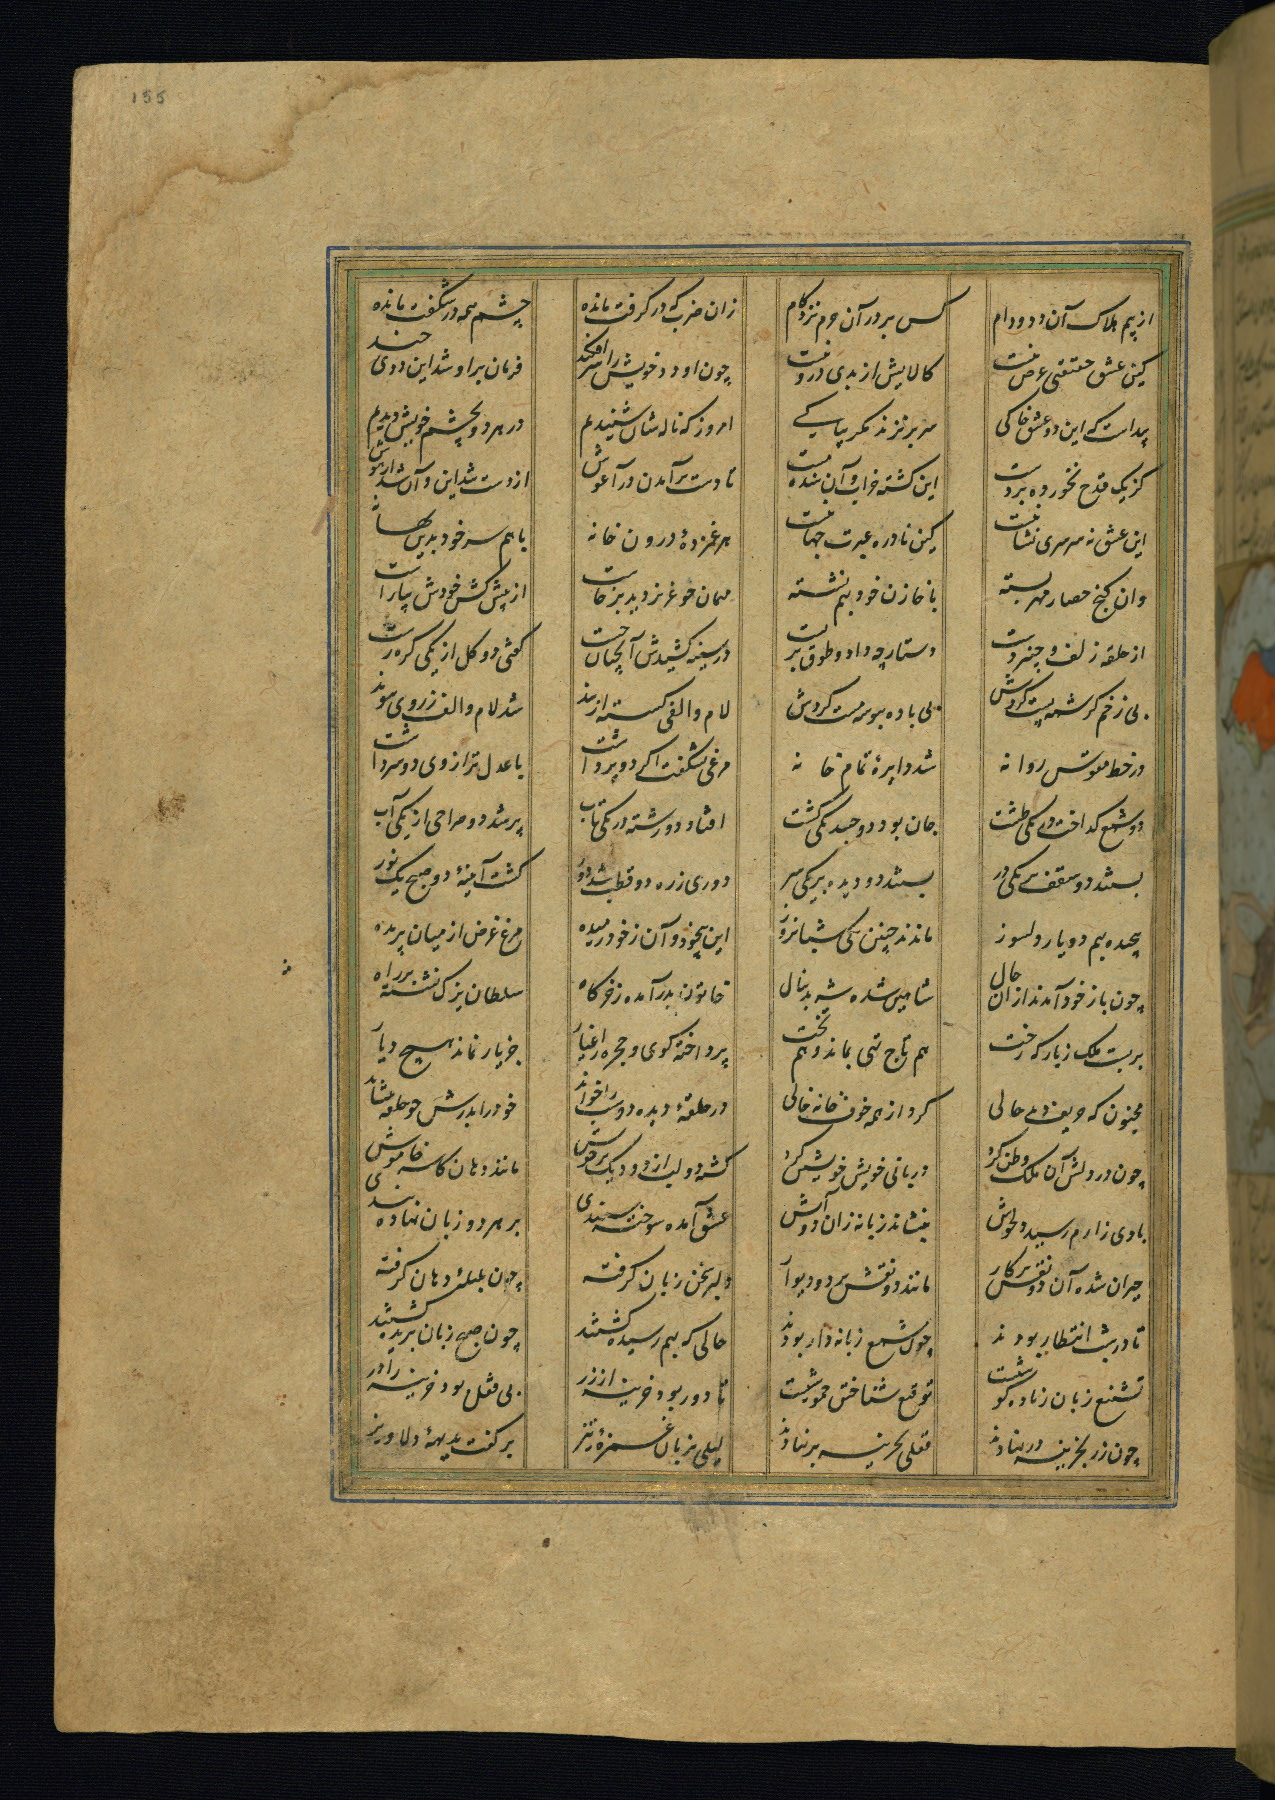 155
از بیم هلاک آن دد و دام کس بر در آن حرم نزد گام زان ضرب که در گرفت مانده چشم همه در شگفت مانده
کین عشق حقیقتی عرض نیست کالایش از بدی درو نیست چون او دد خویش را سر افکند فرمان بر او شد این ددی چند
پیداست که این دو عشق خاکی سر بر نزند مگر بپاکی امروز که ناله شان شنیدم در هر دو بچشم خویش دیدم
کز یک قدح نخورده بر دست این گشته خراب و آن شده مست تا دست برآمدن در آغوش از دست شد این و آن شد از هوش
این عشق نه سرسری نشانیست کین نادره عبرت جهانیست هر غمزدهٔ درون خانه با هم سر خود بدین بهانه
وان گنج حصار مهر بسته با خازن خود بهم نشسته مهمان عزیز دید برخاست از پیش کش خودش بیاراست
از حلقه زلف و چنبر دست دستارچه داد و طوق بربست در سینه کشیدش آنچنان چست گفتی دو گل از یکی گره رست
بی زخم کرشمه پست کردش بی باده ببوسه مست کردش لام و الفی گسسته از بند شد لام و الف ز روی پیوند
در خط روانه شد دایرهٔ تمام خانه مرغی بشگفت اگر دو پر داشت با عدل ترازوی دو سر داشت
دو شمع گداخت در یکی طشت جان بود دو جسد یکی گشت افتاد دو رشته در یکی تاب پر شد دو صراحی از یکی آب
بستند دو سقف بر یکی در بستند دو دیده بر یکی سر دوری ز ره دو قطب شد دور گشت آینهٔ دو صبح یک نور
پیچیده بهم دو یار دلسوز ماندند چنین یکی شبانروز این بیخود و آن ز خود رمیده مرغ غرض از میان پریده
چون باز خود آمدند از آن حال شاهین شده شه بدنبال خاتون بدر آمده ز خرگاه سلطان بزرگ نشسته بر راه
بر بست ملک ز بارگه رخت هم تاج تهی بماند و هم تخت پرداخته کوی و حجره ز اغیار جز یار نماند هیچ دیار
مجنون که حریف دید حالی کرد از همه خوف خانه خالی در حلقهٔ دیده دوست را خواند خود را بدرش چو حلقه بنشاند
چون در دلش آن ملک وطن کرد دربانی خویش خویشتن کرد گشته دو لب از دو دیک پر جوش مانند دهان کاسه خاموش
بادی ز ارم رسید دلخواش بنشاند زبانه زان دو آتش عشق آمده سوخته سپندی بر هر دو زبان نهاده بندی
حیران شده آن دو نقش پرگار مانند دو نقش بر دو دیوار دلبر سخن زبان گرفته چون بلبله دهان گرفته
تا در انتظار بودند چون شمع زبانه دار بودند حالی که بهم رسیده گشتند چون صبح زبان بریده گشتند
تشنیع زبان زیاده گوئیست توقیع شناختن خموشیست تا دور بود خزینه از زر بی قفل بود خزینه را در
چون زر بخزینه در نهادند قفلی بخزینه بر نهادند لیلی بزبان غمزهٔ تیز بر گفت بدیههٔ دلاویز